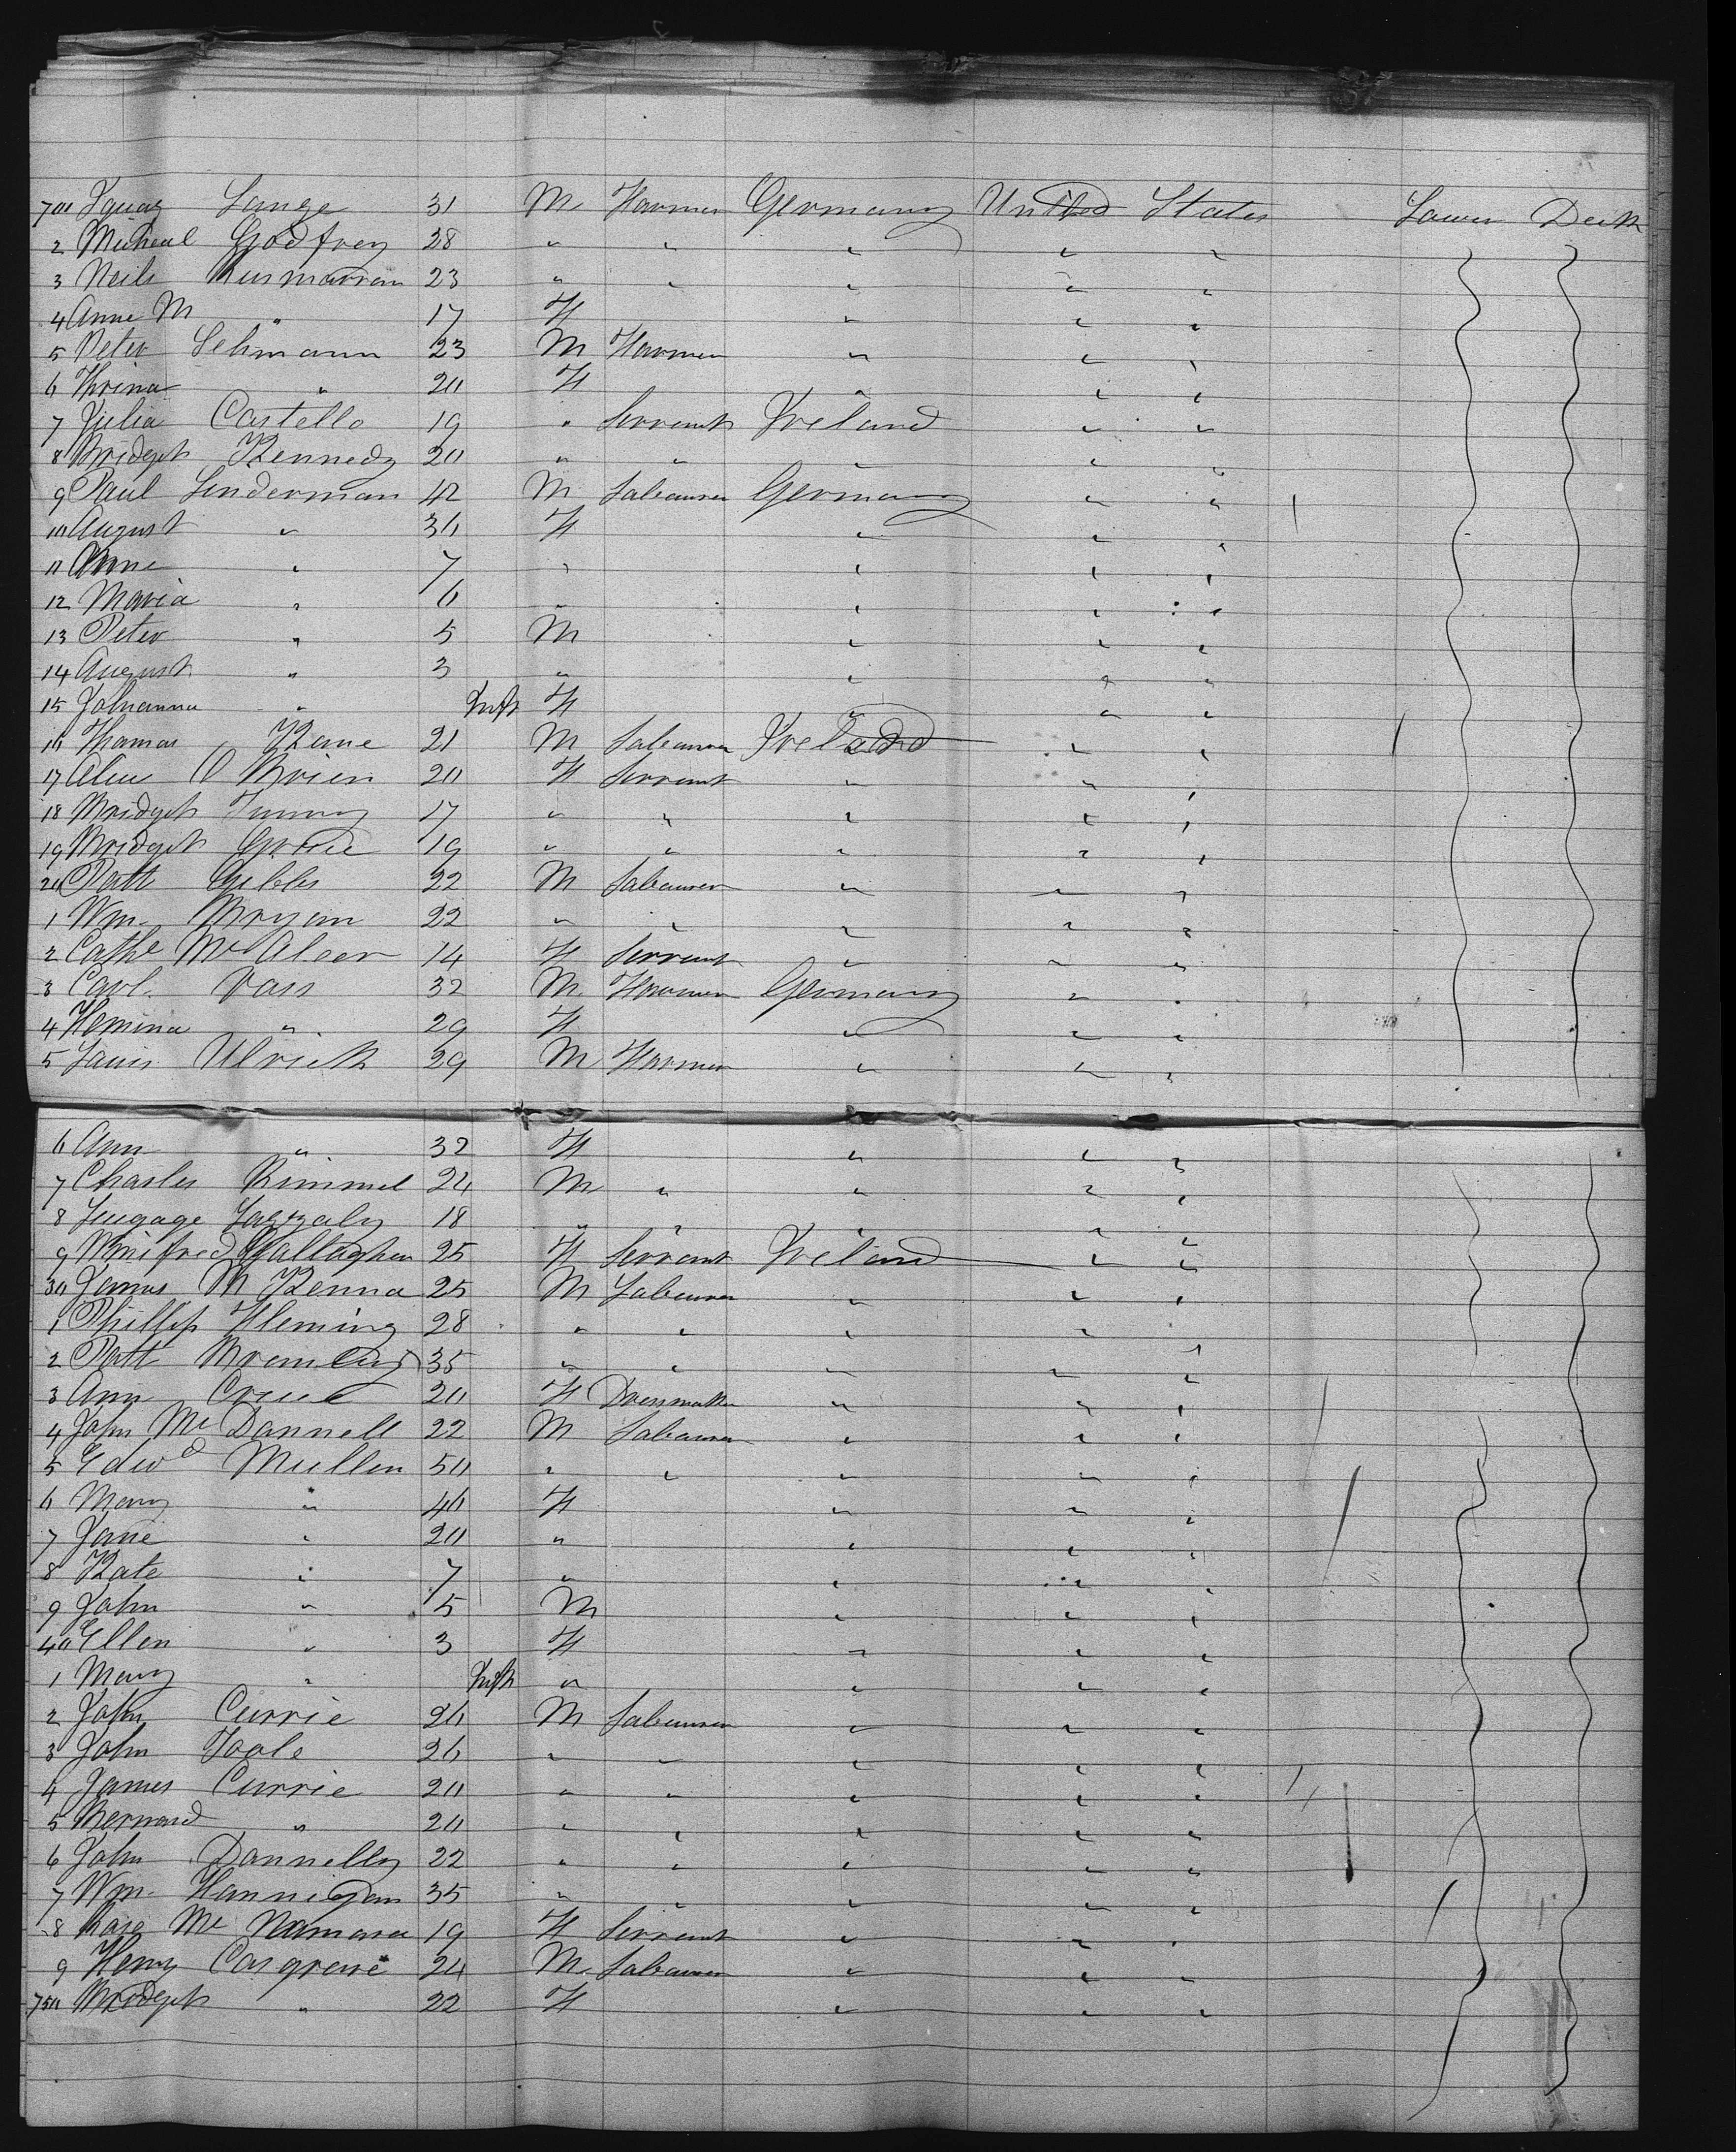 701 Ignaz Lange 31 M Farmer Germany United States Lower Deck
2 Micheal Godfrey 28 " " " " "
3 Neils Rusmassan 23 " " " " "
4 Anne M " 17 F " " "
5 Peter Lehmann 23 M Farmer " " "
6 Thrina " 20 F " " "
7 Julia Costello 19 " Servant Ireland " "
8 Bridget Kennedy 20 " " " " "
9 Paul Linderman 42 M Labourer Germany " "
10 August " 36 F " " "
11 Anne " 7 " " " "
12 Maria " 6 " " " "
13 Peter " 5 M " " "
14 August " 3 " " " "
15 Johanna " Inft F " " "
16 Thomas Kane 21 M Labourer Ireland " "
17 Alice O Brien 20 F Servant " " "
18 Bridget Tunny 17 " " " " "
19 Bridget 19 " " " " "
20 Patt Gibbs 22 M Labourer " " "
1 Wm. Bryan 22 " " " " "
2 Cathe Mc Aleer 14 F Servant " " "
3 Carl Vass 32 M Farmer Germany " "
4 Hemina " 29 F " " "
5 Louis Ulrich 29 M Farmer " " "
6 Ann " 32 F " " "
7 Charles Rimmel 24 M " " " "
8 18 " " " " "
9 Winifred Gallagher 25 F Servant Ireland " "
30 James M Kenna 25 M Labourer " " "
1 Phillip Fleming 28 " " " " "
2 Patt 35 " " " " "
3 Ann 20 F Dressmaker " " "
4 John Mc Donnell 22 M Labourer " " "
5 Edwd Mullen 50 " " " " "
6 Mary " 46 F " " "
7 Jane " 20 " " " "
8 Kate " 7 " " " "
9 John " 5 M " " "
40 Ellen " 3 F " " "
1 Mary " Inft " " " "
2 John Currie 26 M Labourer " " "
3 John Toole 26 " " " " "
4 James Currie 20 " " " " "
5 Bernard " 20 " " " " "
6 John Donnelly 22 " " " " "
7 Wm. Hannigan 35 " " " " "
8 Rose Mc Namara 19 F Servant " " "
9 Henry Cosgrove 24 M Labourer " " "
750 Bridget " 22 F " " "